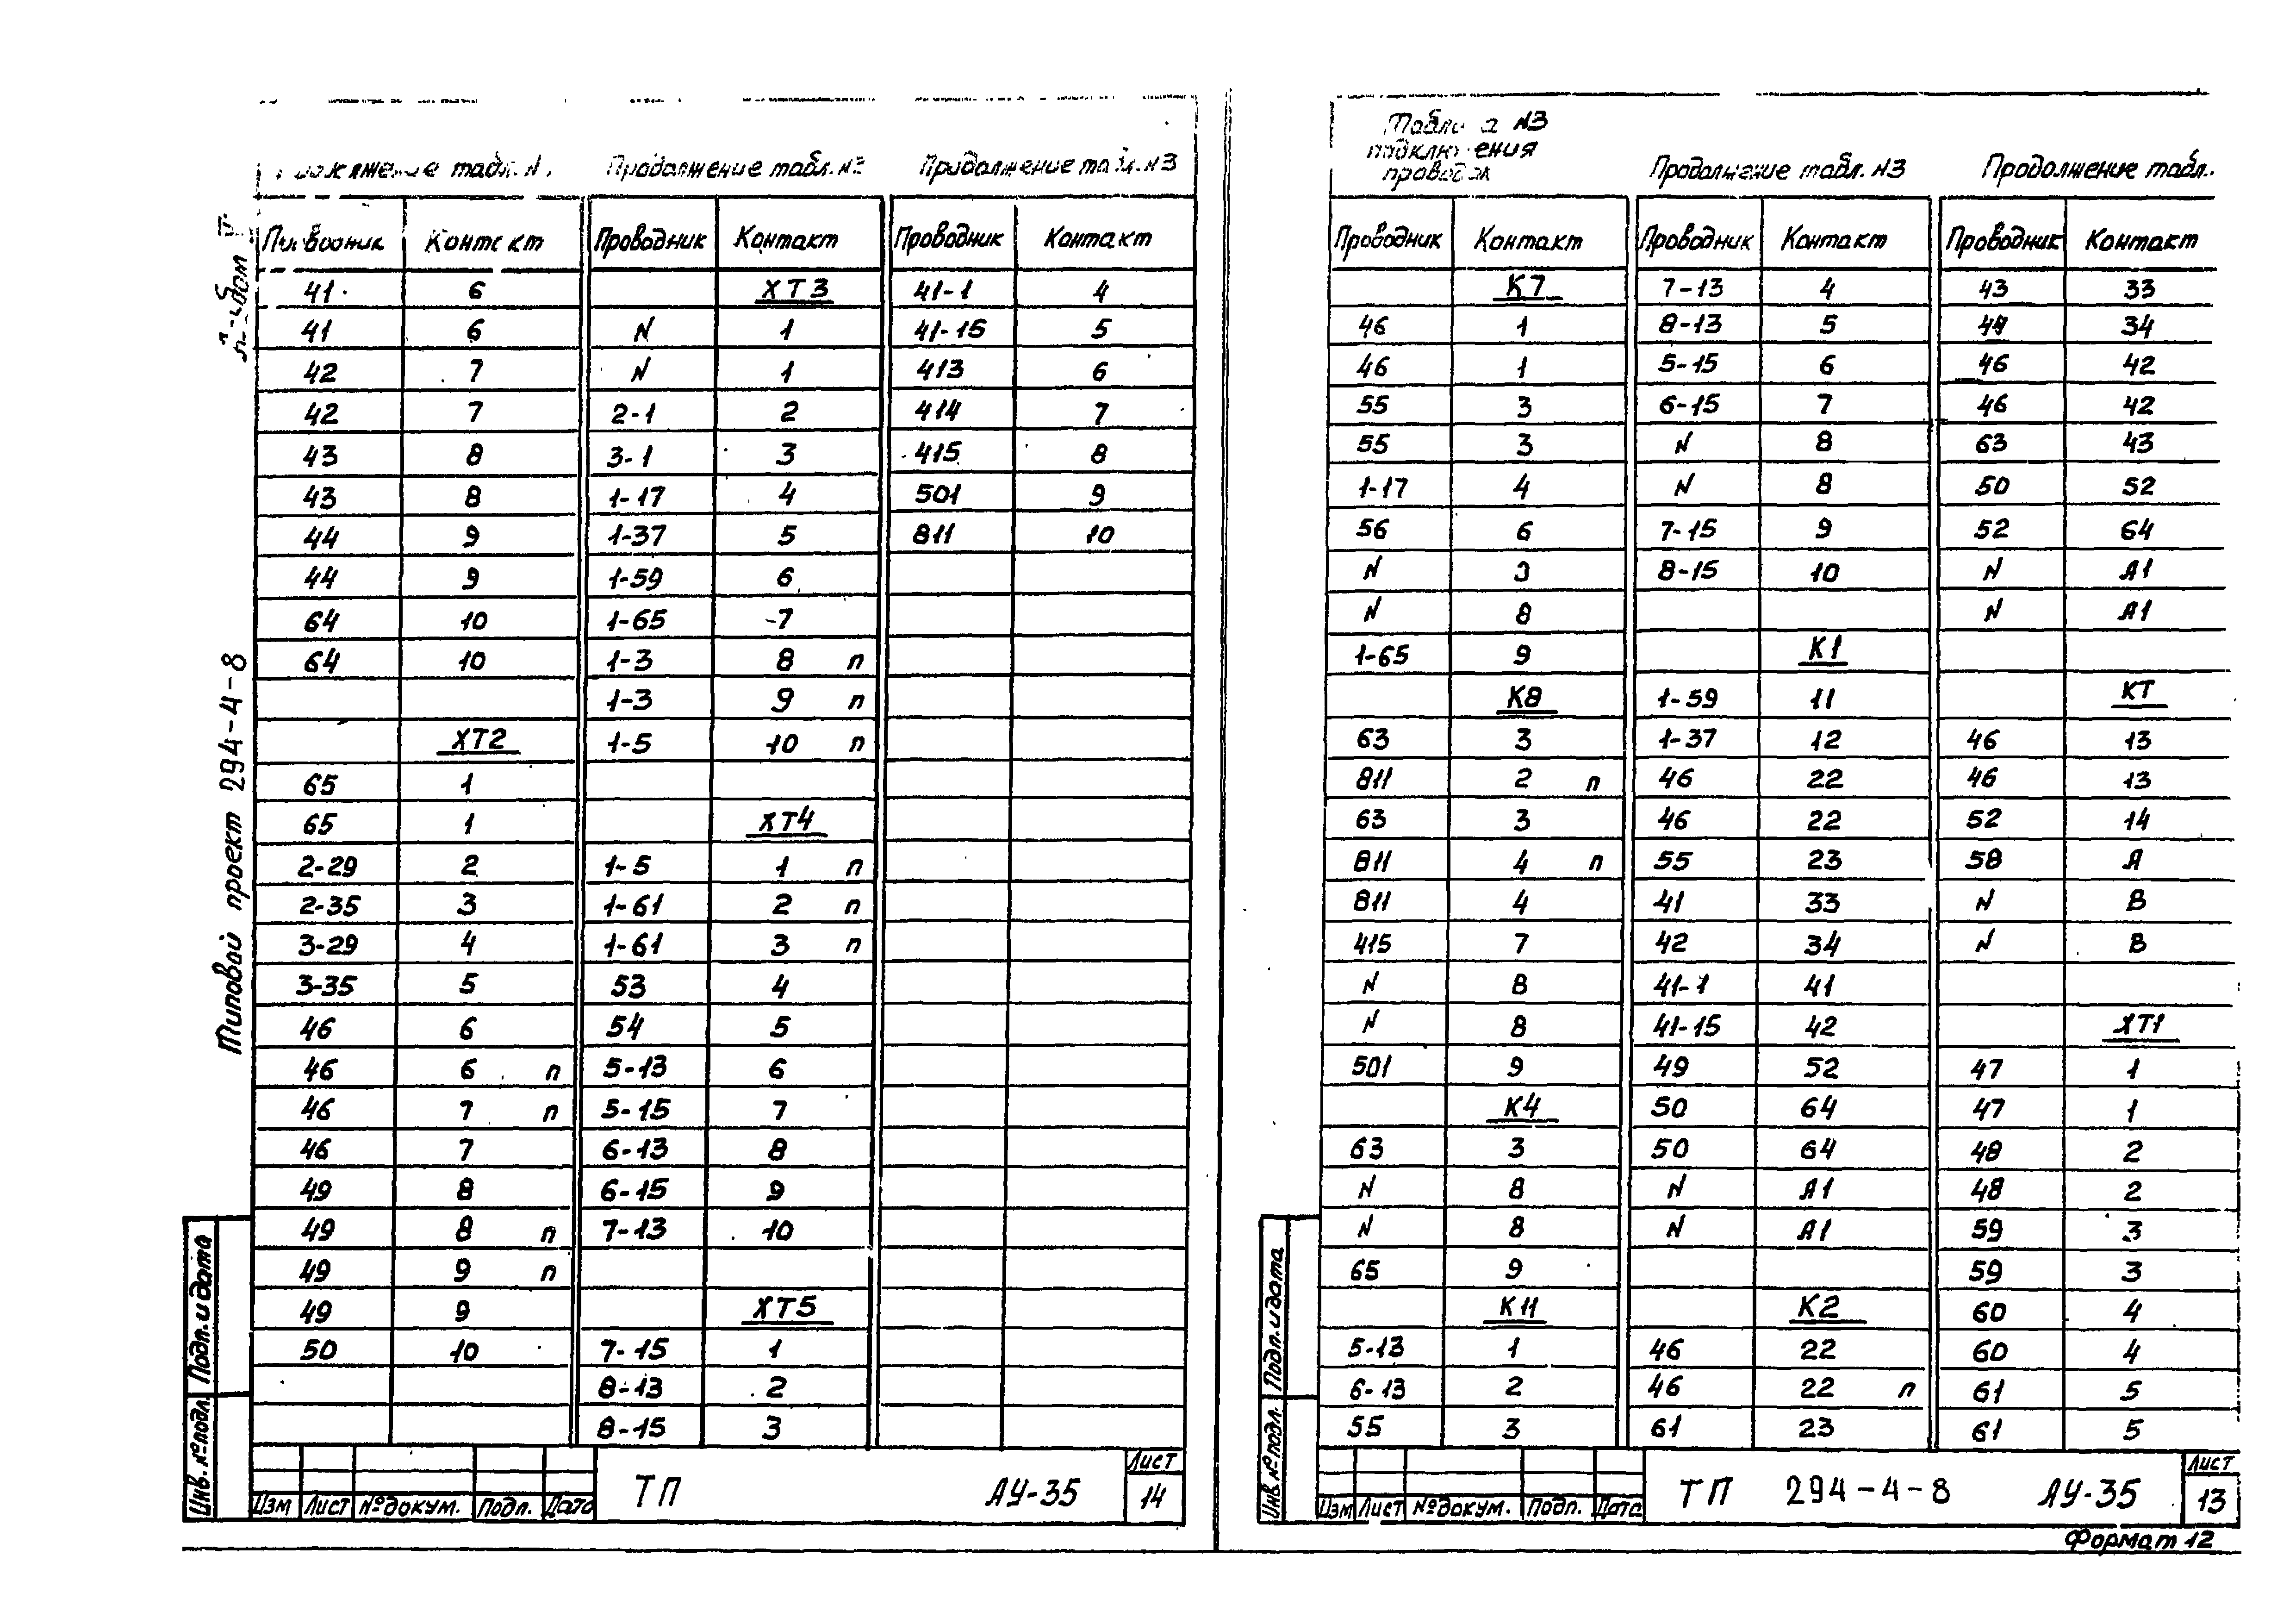 табл. N
Продолжение табл. N3
Продолжение табл. N3
Проводник Контакт Проводник Контакт Проводник Контакт
41 6 ХТ3 41-1 4
41 6 N 1 41-15 5
42 7 N 1 413 6
42 7 2-1 2 414 7
43 8 3-1 3 415 8
43 8 1-17 4 501 9
44 9 1-37 5 811 10
44 9 1-59 6
64 10 1-65 7
64 10 1-3 8 п
1-3 9 п
ХТ2 1-5 10 п
65 1
65 1 ХТ4
2-29 2 1-5 1 п
2-35 3 1-61 2 п
3-29 4 1-61 3 п
3-35 5 53 4
46 6 54 5
46 6 п 5-13 6
46 7 п 5-15 7
46 7 6-13 8
49 8 6-15 9
49 8 п 7-13 10
49 9 п
49 9 ХТ5
50 10 7-15 1
8-13 2
8-15 3
Типовой проект 294-4-8
Подп. и дата
Инв. № подл.
Изм Лист № докум. Подп. Дата
ТП АУ-35
Лист
14
Таблица N3
подключения
проводок
Продолжение табл. N3
Продолжение табл.
Проводник Контакт Проводник Контакт Проводник Контакт
К7 7-13 4 43 33
46 1 8-13 5 44 34
46 1 5-15 6 46 42
55 3 6-15 7 46 42
55 3 N 8 63 43
1-17 4 N 8 50 52
56 6 7-15 9 52 64
N 3 8-15 10 N А1
N 8 N А1
1-65 9 К1
К8 1-59 11 КТ
63 3 1-37 12 46 13
811 2 п 46 22 46 13
63 3 46 22 52 14
811 4 п 55 23 58 А
811 4 41 33 N В
415 7 42 34 N В
N 8 41-1 41
N 8 41-15 42 ХТ1
501 9 49 52 47 1
К4 50 64 47 1
63 3 50 64 48 2
N 8 N А1 48 2
N 8 N А1 59 3
65 9 59 3
К11 К2 60 4
5-13 1 46 22 60 4
6-13 2 46 22 п 61 5
55 3 61 23 61 5
Подп. и дата
Инв. № подл.
Изм Лист № докум. Подп. Дата
ТП 294-4-8 АУ-35
Лист
13
Формат 12